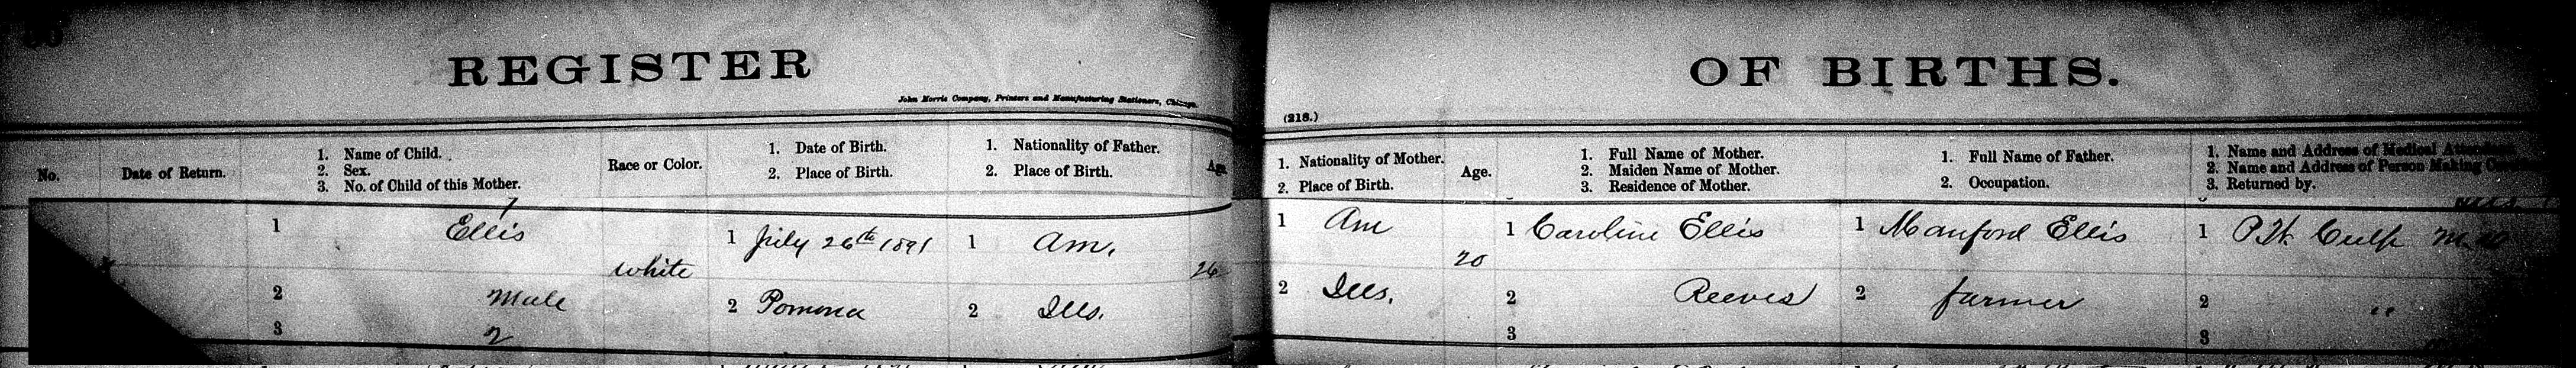 REGISTER OF BIRTHS.
John Morris Company, Printers and Manufacturing Stationers, Chicago.
(218.)
No.
Date of Return.
1. Name of Child.
2. Sex.
3. No. of Child of this Mother.
Race or Color.
1. Date of Birth.
2. Place of Birth.
1. Nationality of Father.
2. Place of Birth.
Age
1. Nationality of Mother.
2. Place of Birth.
Age.
1. Full Name of Mother.
2. Maiden Name of Mother.
3. Residence of Mother.
1. Full Name of Father.
2. Occupation.
1. Name and Address of Medical
2. Name and Address of Person Making
3. Returned by.
1 Ellis
2 Male
3 2
white
1 July 26th 1891
2 Pomona
1 Am.
2 Ills.
26
1 Am
2 Ills.
20
1 Caroline Ellis
2 Reeves
3
1 Manford Ellis
2 farmer
1 Culp M.D
2 "
3